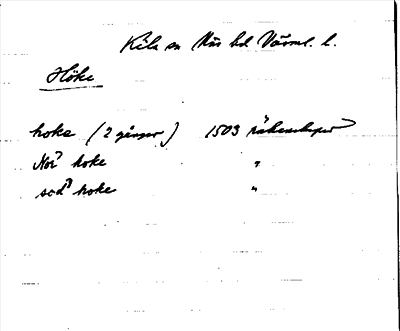 Kila sn Näs hd Värml. l.
Höke
hoke (2 gånger) 1503 räkenskaper
Nor hoke "
sød hoke "